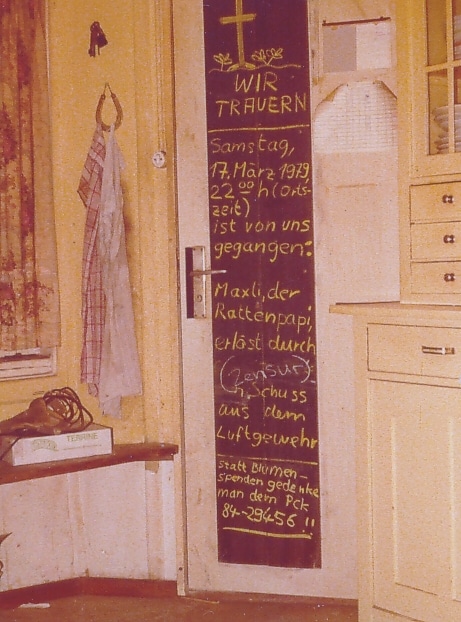 WIR
TRAUERN
Samstag,
17. März 1979,
22 00 h (Orts-
zeit)
ist von uns
gegangen:
Maxli, der
Rattenpapi,
erlöst durch
(Zensur)-
n Schuss
aus dem
Luftgewehr
statt Blumen-
spenden gedenke
man dem Pck
84-29456 !!
TERMINE